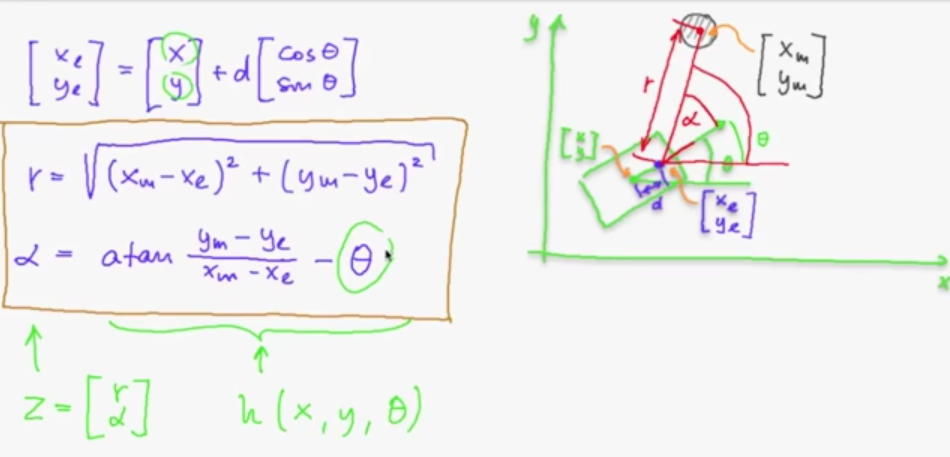 [xₑ yₑ] = [x y] + d [cosθ sinθ]
r = √((xₘ-xₑ)² + (yₘ-yₑ)²)
α = atan (yₘ - yₑ)/(xₘ - xₑ) - θ
z = [r α] h(x, y, θ)
y
[xₘ yₘ]
r
α
θ
θ
[x y]
d
[xₑ yₑ]
x